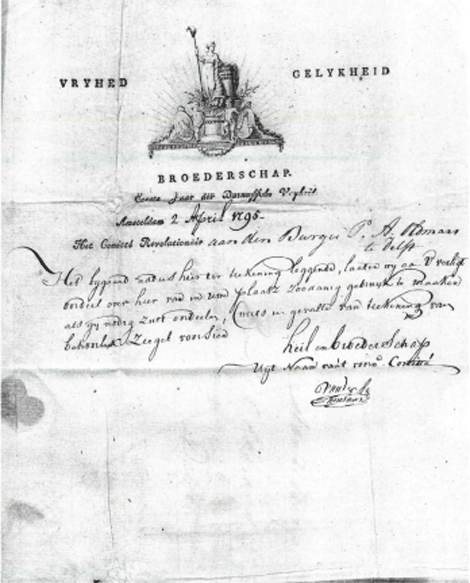 VRYHED GELYKHEID
BROEDERSCHAP.
Eerste Jaar der Bataafsche Vryheid
Amsteldam 2 April 1795
Het Comitté Revolutionair aan den Burger P. A.
te Delft
Het bygaand hier ter teekening leggende, laaten wy aan U
hier van in uwe plaatz zoodanig gebruyk te maaken
als gy nodig zult ordeelen, mits in gevalle van teekening van
behoorlyk Zeegel voorsien
Heil en broederschap
Uyt Naam van't Comitté